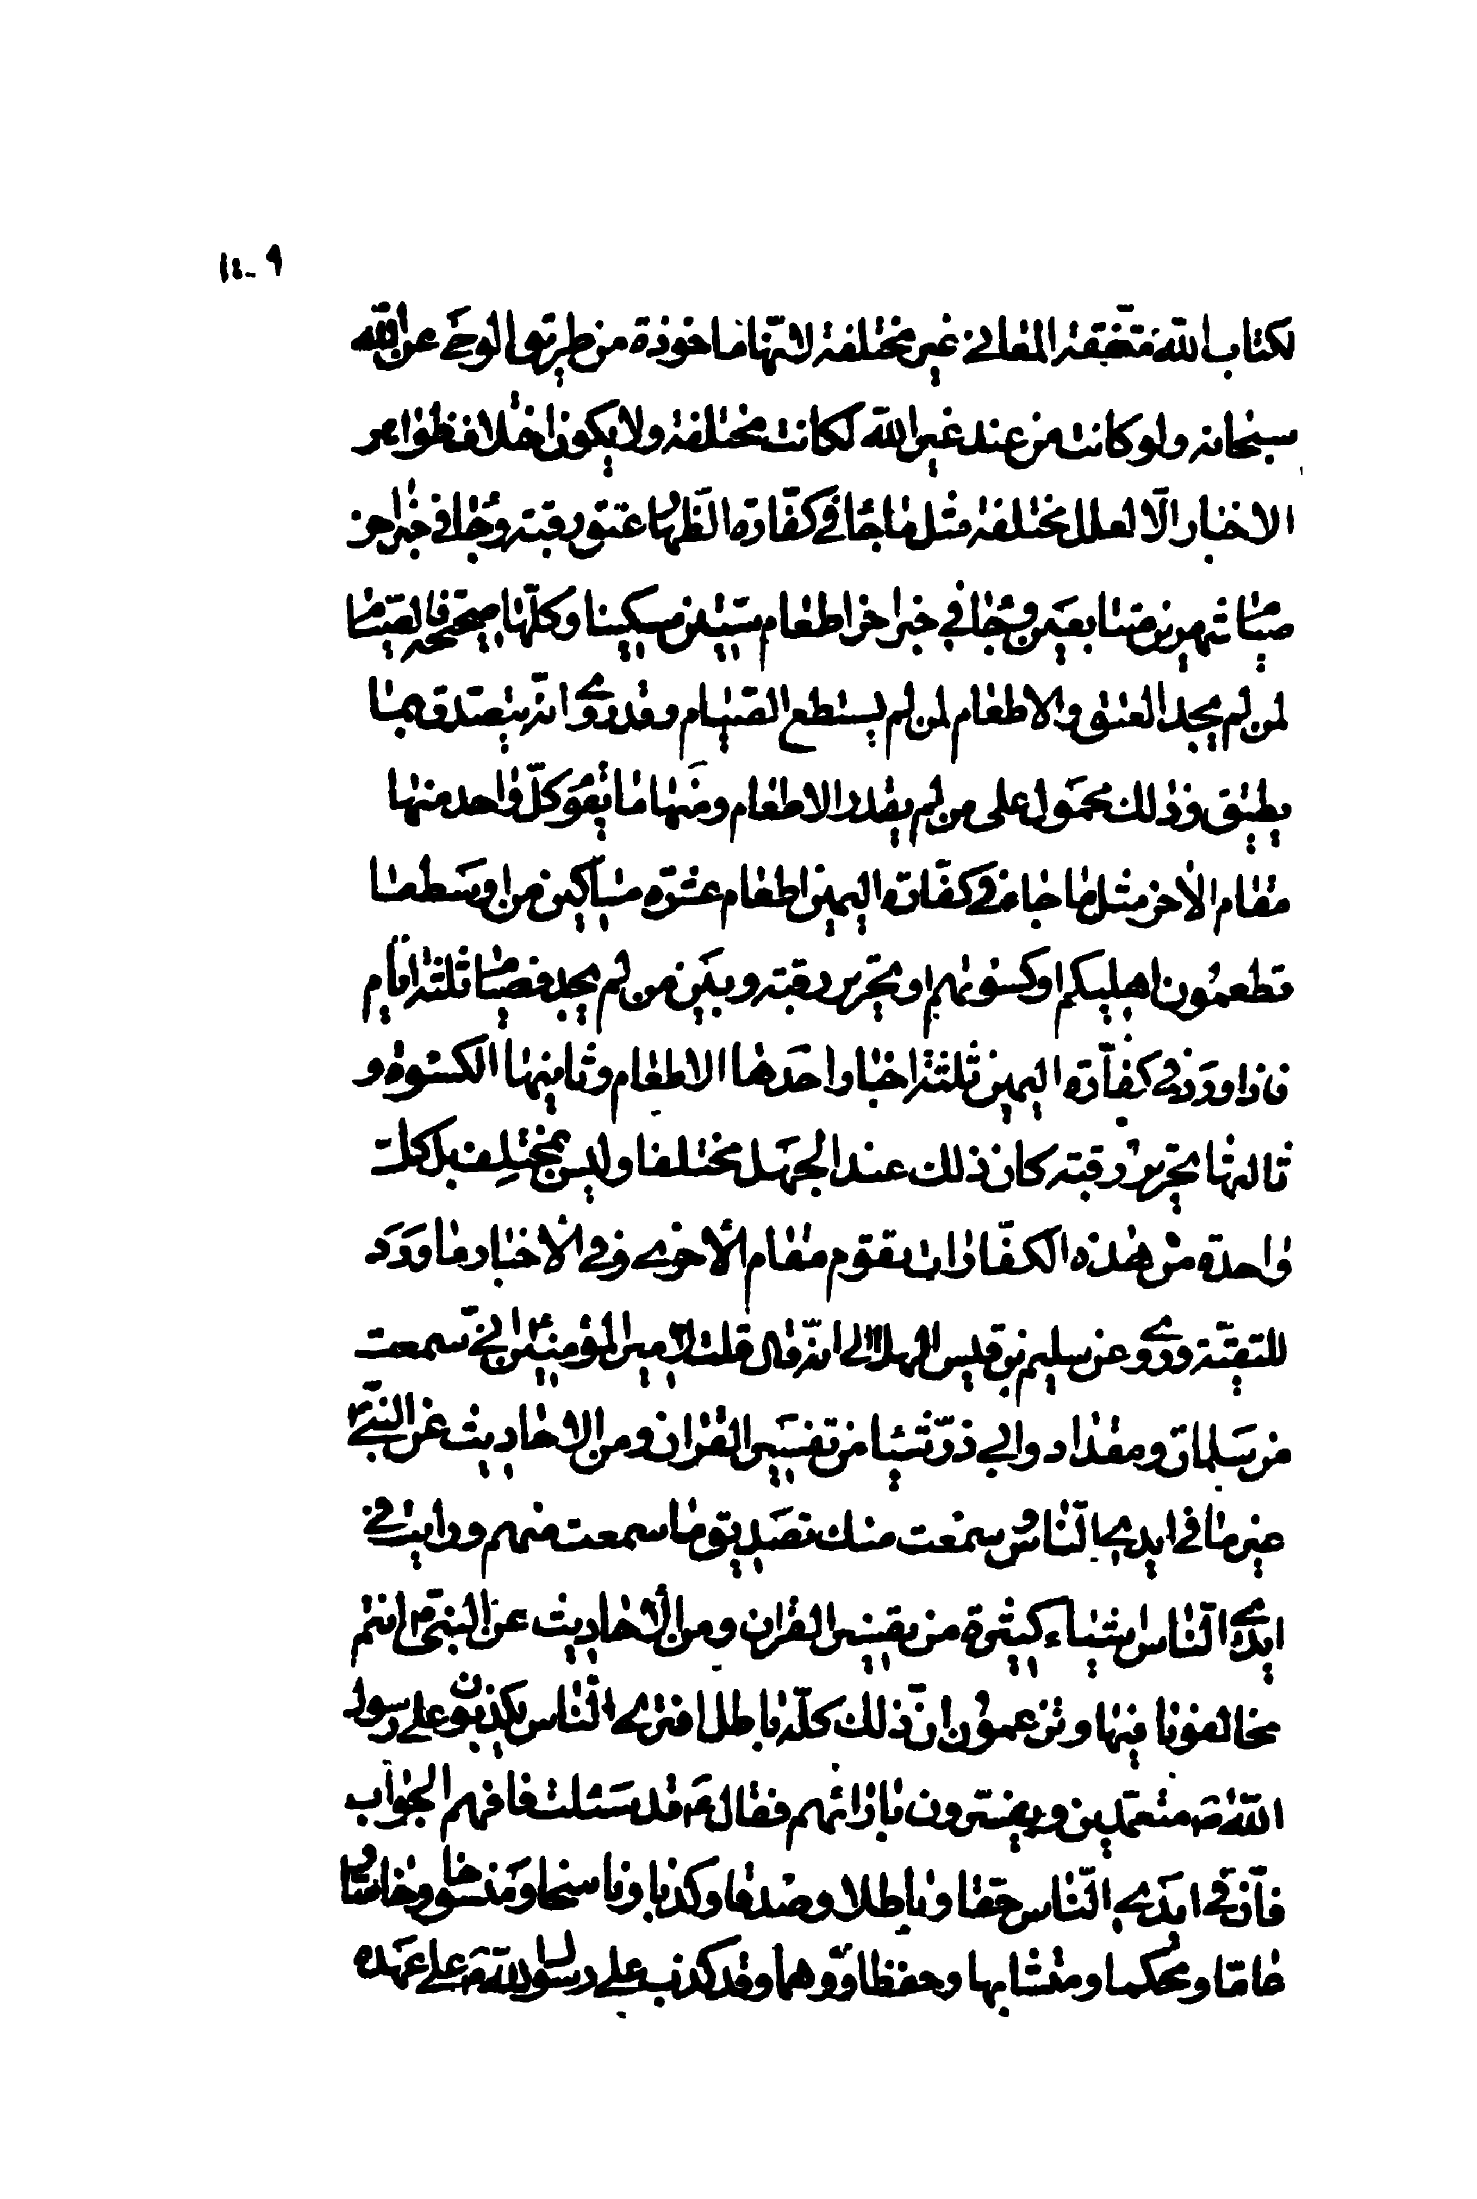 ١٤٠٩
لكتاب الله متفقة المعاني غير مختلفة لانها ماخوذة من طريق الوحي عن الله
سبحانه ولو كانت من عند غير الله لكانت مختلفة ولا يكون اختلاف ظواهر
الاخبار الا لعلل مختلفة مثل ما جا في كفارة الظهار عتق رقبة وجا في خبر اخر
صيام شهرين متتابعين وجا في خبر اخر اطعام ستين مسكينا وكلها صحيحة فالصيام
لمن لم يجد العتق والاطعام لمن لم يستطع الصيام وقد روي انه يتصدق بما
يطيق وذلك محمول على من لم يقدر الاطعام ومنها ما يقوم كل واحد منها
مقام الاخر مثل ما جاء في كفارة اليمين اطعام عشرة مساكين من اوسط ما
تطعمون اهليكم او كسوتهم او تحرير رقبة وبين من لم يجد فصيام ثلثة ايام
فاذا ورد في كفارة اليمين ثلثة اخبار احدها الاطعام وثانيها الكسوة و
ثالثها تحرير رقبة كان ذلك عند الجهل مختلفا وليس بمختلف بل كل
واحدة من هذه الكفارات تقوم مقام الأخرى وفي الأخبار ما ورد
للتقية وروي عن سليم بن قيس الهلالي انه قال قلت لامير المؤمنين ع اني سمعت
من سلمان ومقداد وابي ذر شيئا من تفسير القران ومن الاحاديث عن النبي ص
غير ما في ايدي الناس وسمعت منك تصديق ما سمعت منهم ورايت في
ايدي الناس اشياء كثيرة من تفسير القران ومن الأحاديث عن النبي ص انتم
تخالفونا فيها وتزعمون ان ذلك كله باطل افترى الناس يكذبون على رسول
الله ص متعمدين ويفسرون بارائهم فقال ع قد سئلت فافهم الجواب
فان في ايدي الناس حقا وباطلا وصدقا وكذبا وناسخا ومنسوخا وخاصا و
عاما ومحكما ومتشابها وحفظا ووهما وقد كذب على رسول الله ص على عهده